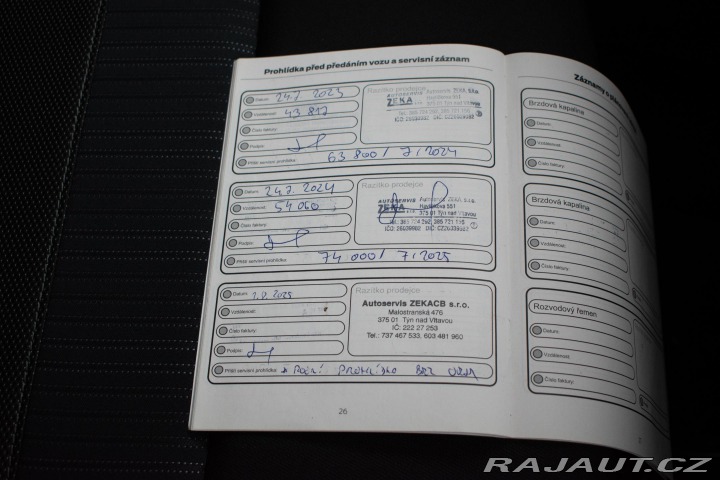 Prohlídka před předáním vozu a servisní záznam
Datum: 24.7 2023
Vzdálenost: 43 817
Číslo faktury:
Podpis:
Příští servisní prohlídka: 63 800 / 7/2024
Razítko prodejce
AUTOSERVIS ZEKA s.r.o.
ZEKA
Havlíčkova 551
375 01 Týn nad Vltavou
Datum: 24.7. 2024
Vzdálenost: 54 060
Číslo faktury:
Podpis:
Příští servisní prohlídka: 74 000 / 7/2025
Razítko prodejce
AUTOSERVIS ZEKA s.r.o.
ZEKA
Havlíčkova 551
375 01 Týn nad Vltavou
Datum: 1.8. 2025
Vzdálenost:
Číslo faktury:
Podpis:
Příští servisní prohlídka:
Razítko prodejce
Autoservis ZEKACB s.r.o.
Malostranská 476
375 01 Týn nad Vltavou
IČ: 222 27 253
Tel.: 737 467 533, 603 481 960
26
Záznamy o
Brzdová kapalina
Datum:
Vzdálenost:
Číslo faktury:
Brzdová kapalina
Datum:
Vzdálenost:
Číslo faktury:
Rozvodový řemen
Datum:
Vzdálenost:
Číslo faktury:
RAJAUT.CZ